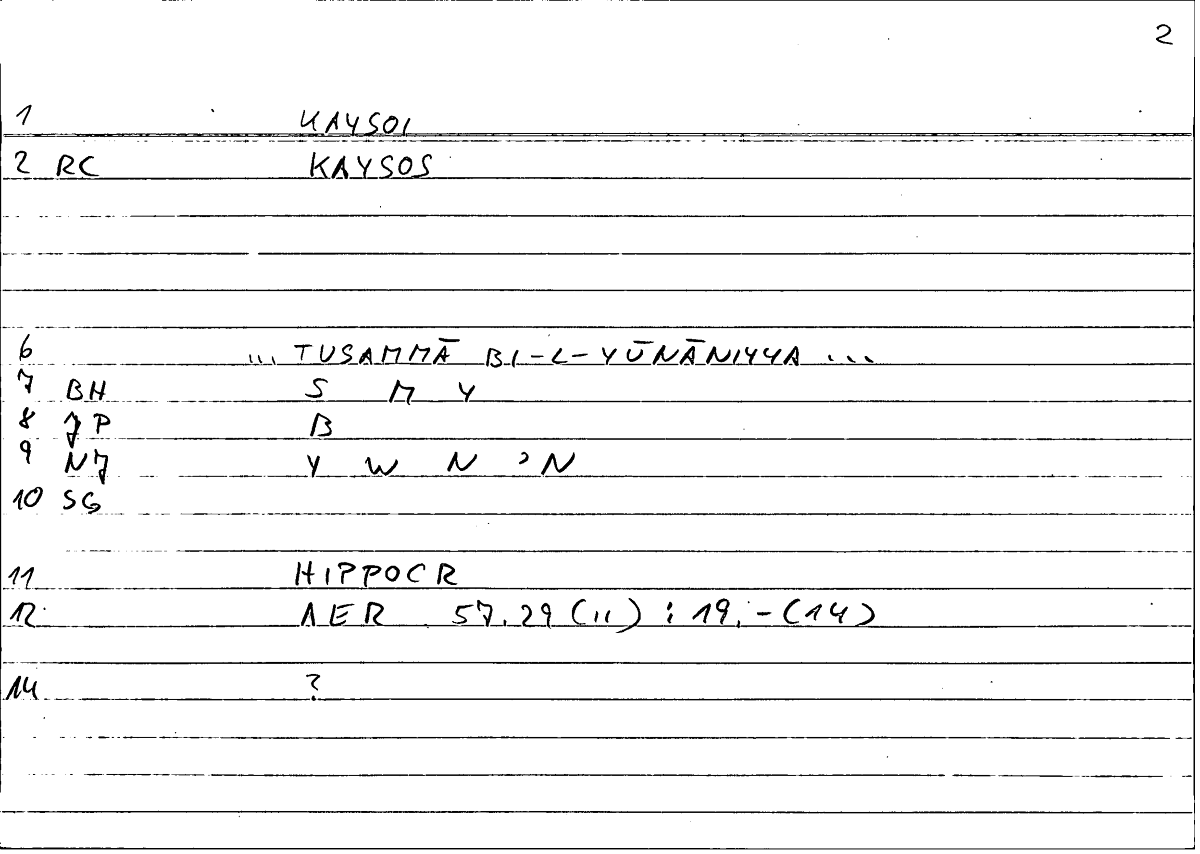 2
1 KAYSOI
2 RC KAYSOS
6 ... TUSAMMĀ BI-L-YŪNĀNIYYA ...
7 BH S M Y
8 JP B
9 NJ Y W N ʾN
10 SG
11 HIPPOCR
12 AER 57.29 (11) : 19.-(14)
14 ?